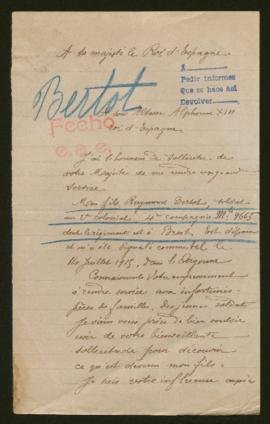 A sa majesté le Roi d'Espagne
1
Pedir informes
Que se hace Así
Devolver
Bertot
Son Altesse Alphonse XIII
Roi d'Espagne
Fecho
J'ai l'honneur de solliciter de
votre Majesté de me rendre un grand
service
Mon fils Raymond Bertot, soldat
au 2e colonial, 4e compagnie Mle 9665
dont le régiment est à Brest. Est disparu
et m'a été signalé comme tel le
14 Juillet 1915, dans l'Argonne
Connaissant votre empressement
à rendre service aux infortunés
pères de familles, des jeunes soldats
Je viens vous prier de bien vouloir
user de votre bienveillante
sollicitude pour découvrir
ce qu'est devenu mon fils.
Je sais votre influence auprès